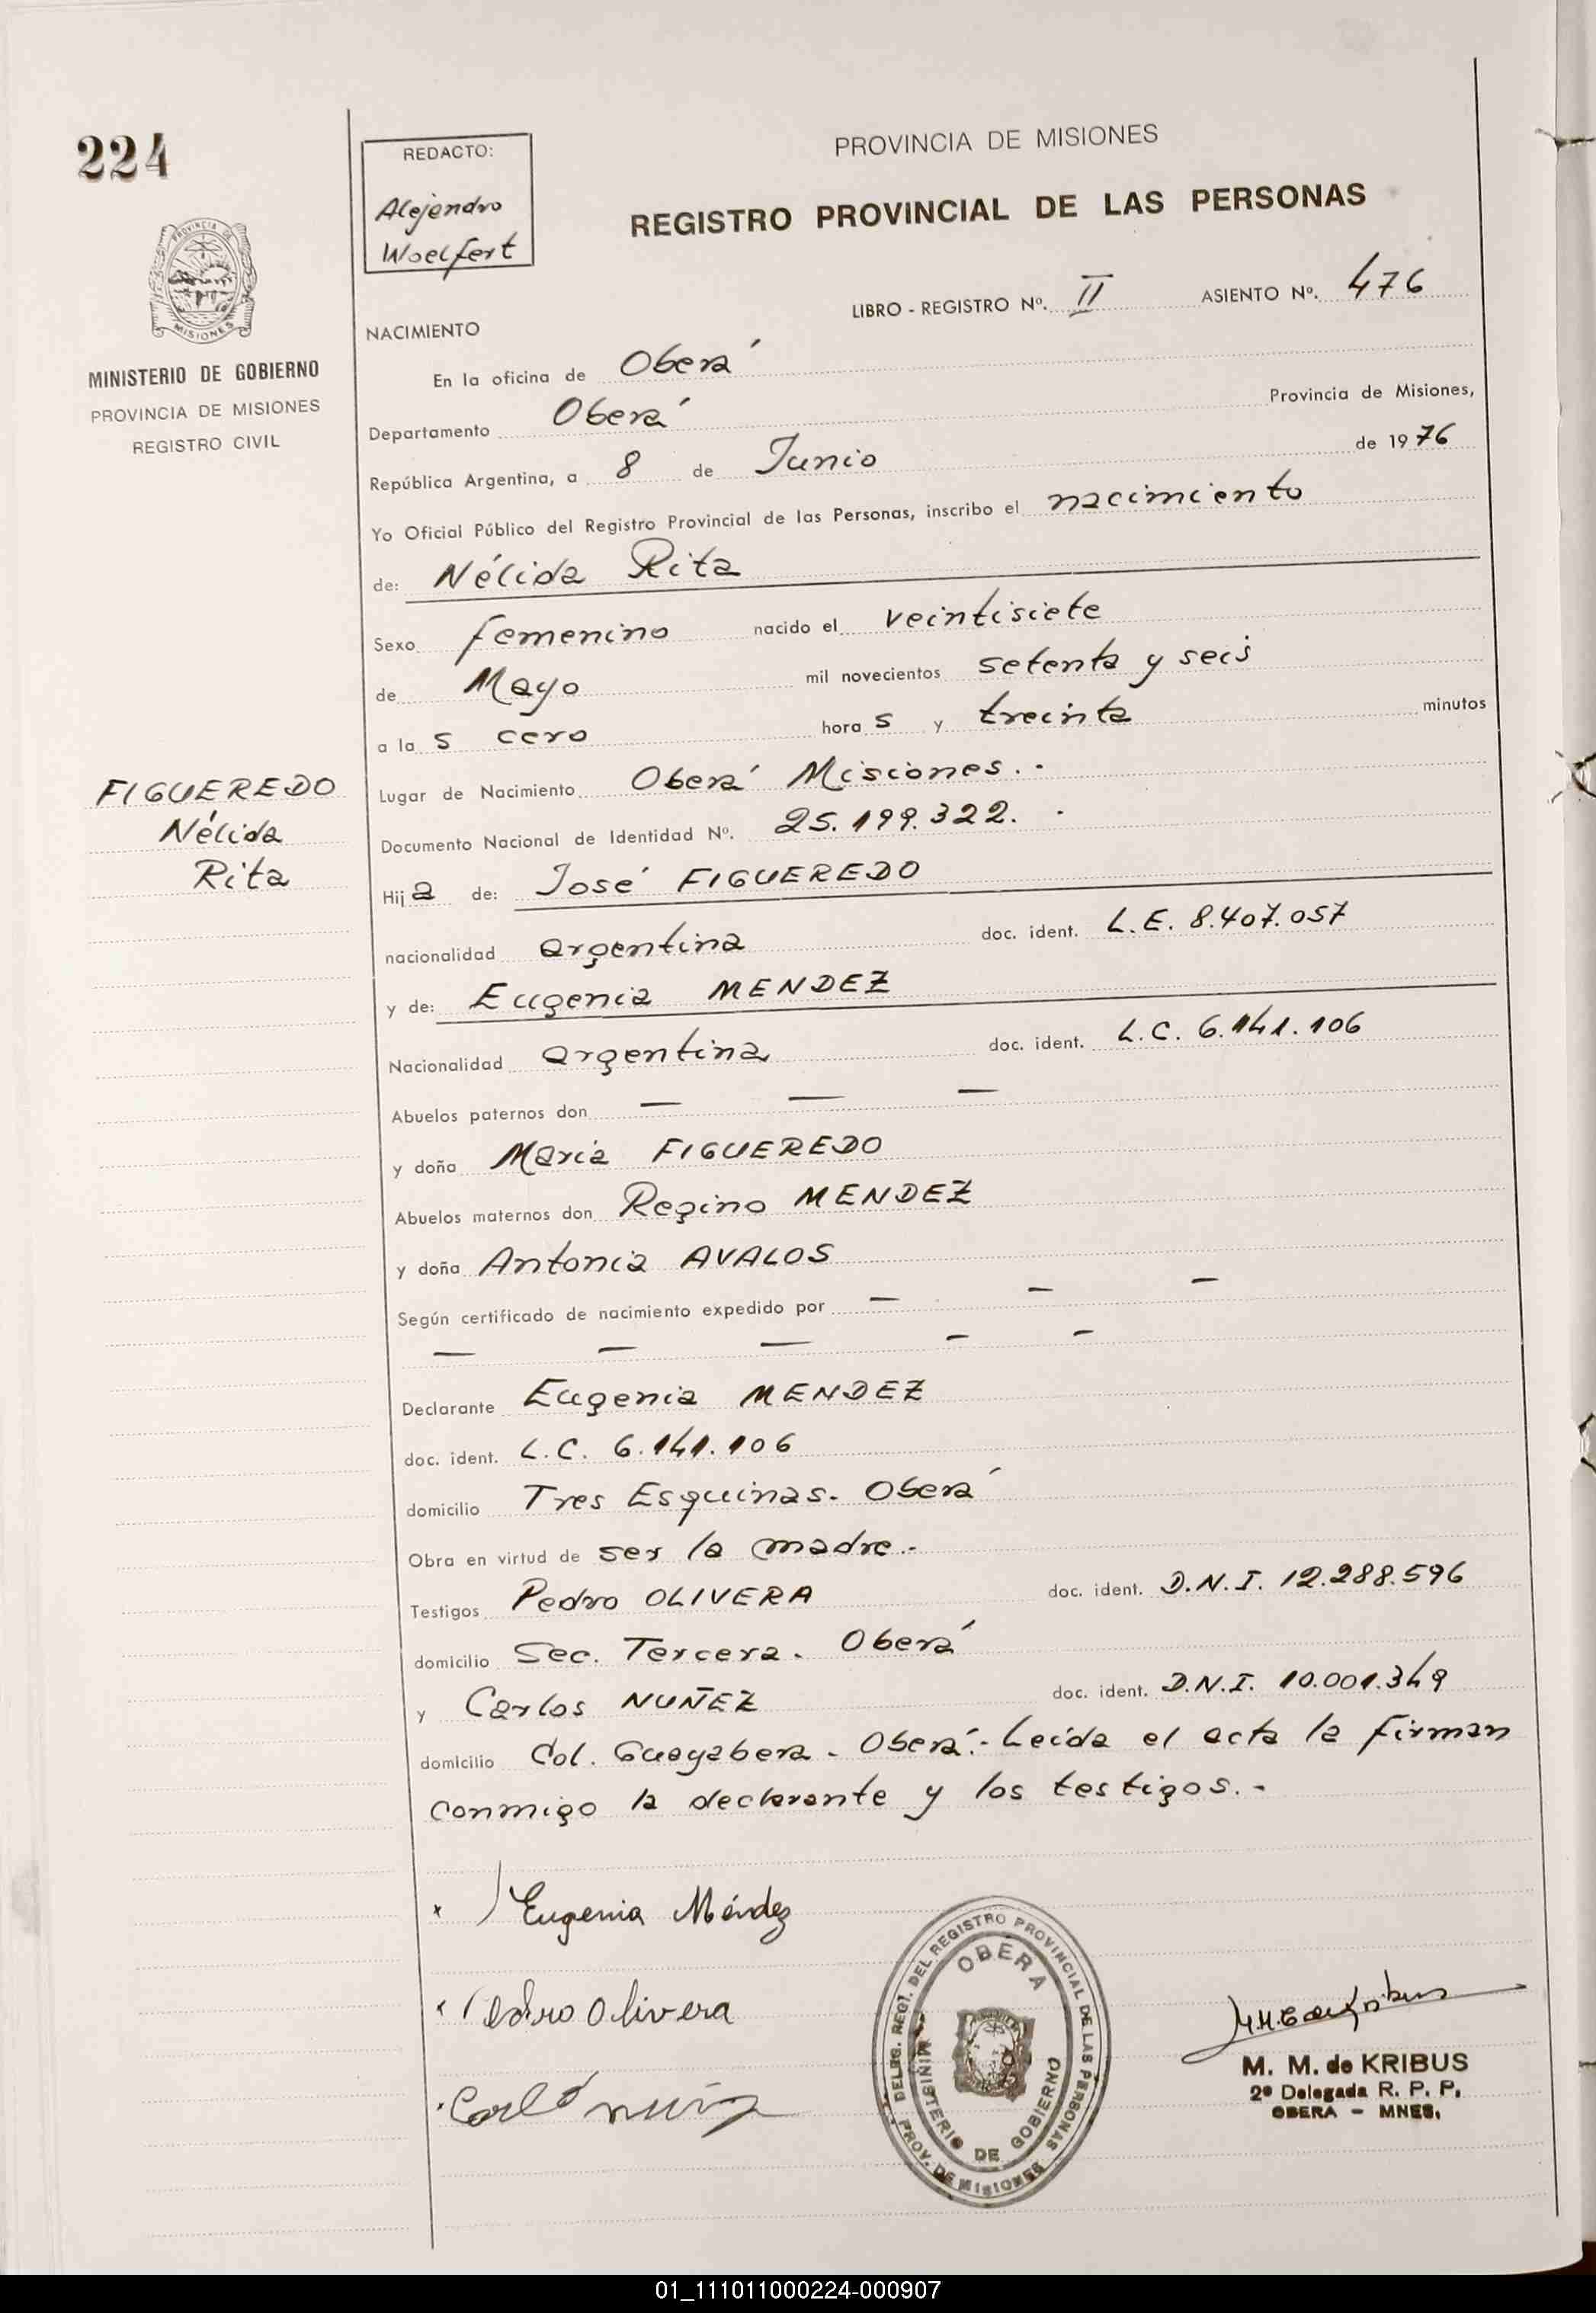 224
REDACTO:
Alejandro
Woelfert
PROVINCIA DE MISIONES
REGISTRO PROVINCIAL DE LAS PERSONAS
PROVINCIA DE
MISIONES
MINISTERIO DE GOBIERNO
PROVINCIA DE MISIONES
REGISTRO CIVIL
LIBRO - REGISTRO Nº. II ASIENTO Nº. 476
NACIMIENTO
En la oficina de Oberá
Departamento Oberá Provincia de Misiones,
República Argentina, a 8 de Junio de 1976
Yo Oficial Público del Registro Provincial de las Personas, inscribo el nacimiento
de: Nélida Rita
Sexo femenino nacido el veintisiete
de Mayo mil novecientos setenta y seis
a la s cero hora s y treinta minutos
Lugar de Nacimiento Oberá Misiones. -
Documento Nacional de Identidad Nº. 25.199.322. -
FIGUEREDO
Nélida
Rita
Hij a de: José FIGUEREDO
nacionalidad argentina doc. ident. L.E. 8.407.057
y de: Eugenia MENDEZ
Nacionalidad argentina doc. ident. L.C. 6.141.106
Abuelos paternos don — — —
y doña Maria FIGUEREDO
Abuelos maternos don Regino MENDEZ
y doña Antonia AVALOS
Según certificado de nacimiento expedido por — — —
— — — — —
Declarante Eugenia MENDEZ
doc. ident. L.C. 6.141.106
domicilio Tres Esquinas. Oberá
Obra en virtud de ser la madre.-
Testigos Pedro OLIVERA doc. ident. D.N.I. 12.288.596
domicilio Sec. Tercera. Oberá
y Carlos NUÑEZ doc. ident. D.N.I. 10.001.349
domicilio Col. Guayabera - Oberá.- Leída el acta la firman
conmigo la declarante y los testigos.-
x Eugenia Méndez
Pedro Olivera
DELEG. REGT. DEL REGISTRO PROVINCIAL DE LAS PERSONAS
OBERA
MINISTERIO DE GOBIERNO
PROV. DE MISIONES
M. M. de KRIBUS
2ª Delegada R. P. P.
OBERA - MNES.
01_111011000224-000907